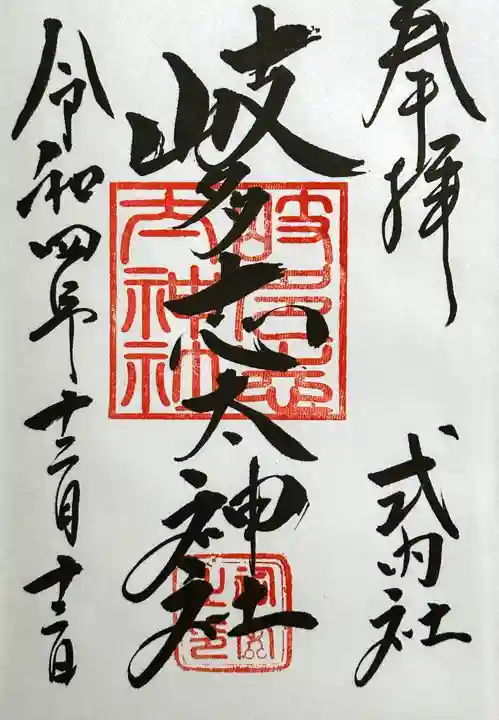 奉拝
式内社
岐多志太神社
岐多志
太神社
令和四年十二月十三日